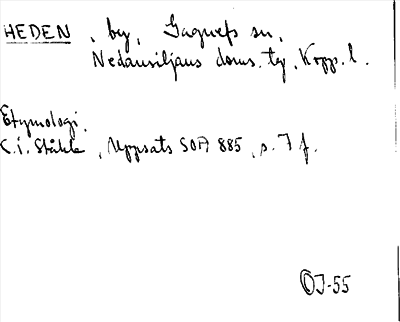 HEDEN, by, Gagnefs sn,
Nedansiljans doms. tg, Kopp. l.
Etymologi.
C.I. Ståhle, Uppsats SOA 885, s. 7 f.
OJ-55